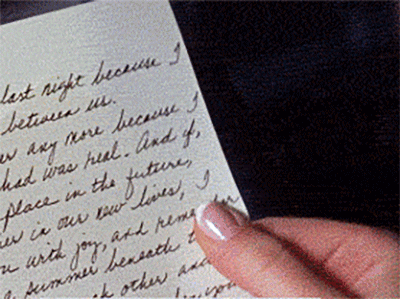 last night because I
between us.
any more because I
had was real. And if,
place in the future,
in our new lives, I
with joy, and
summer beneath
other and